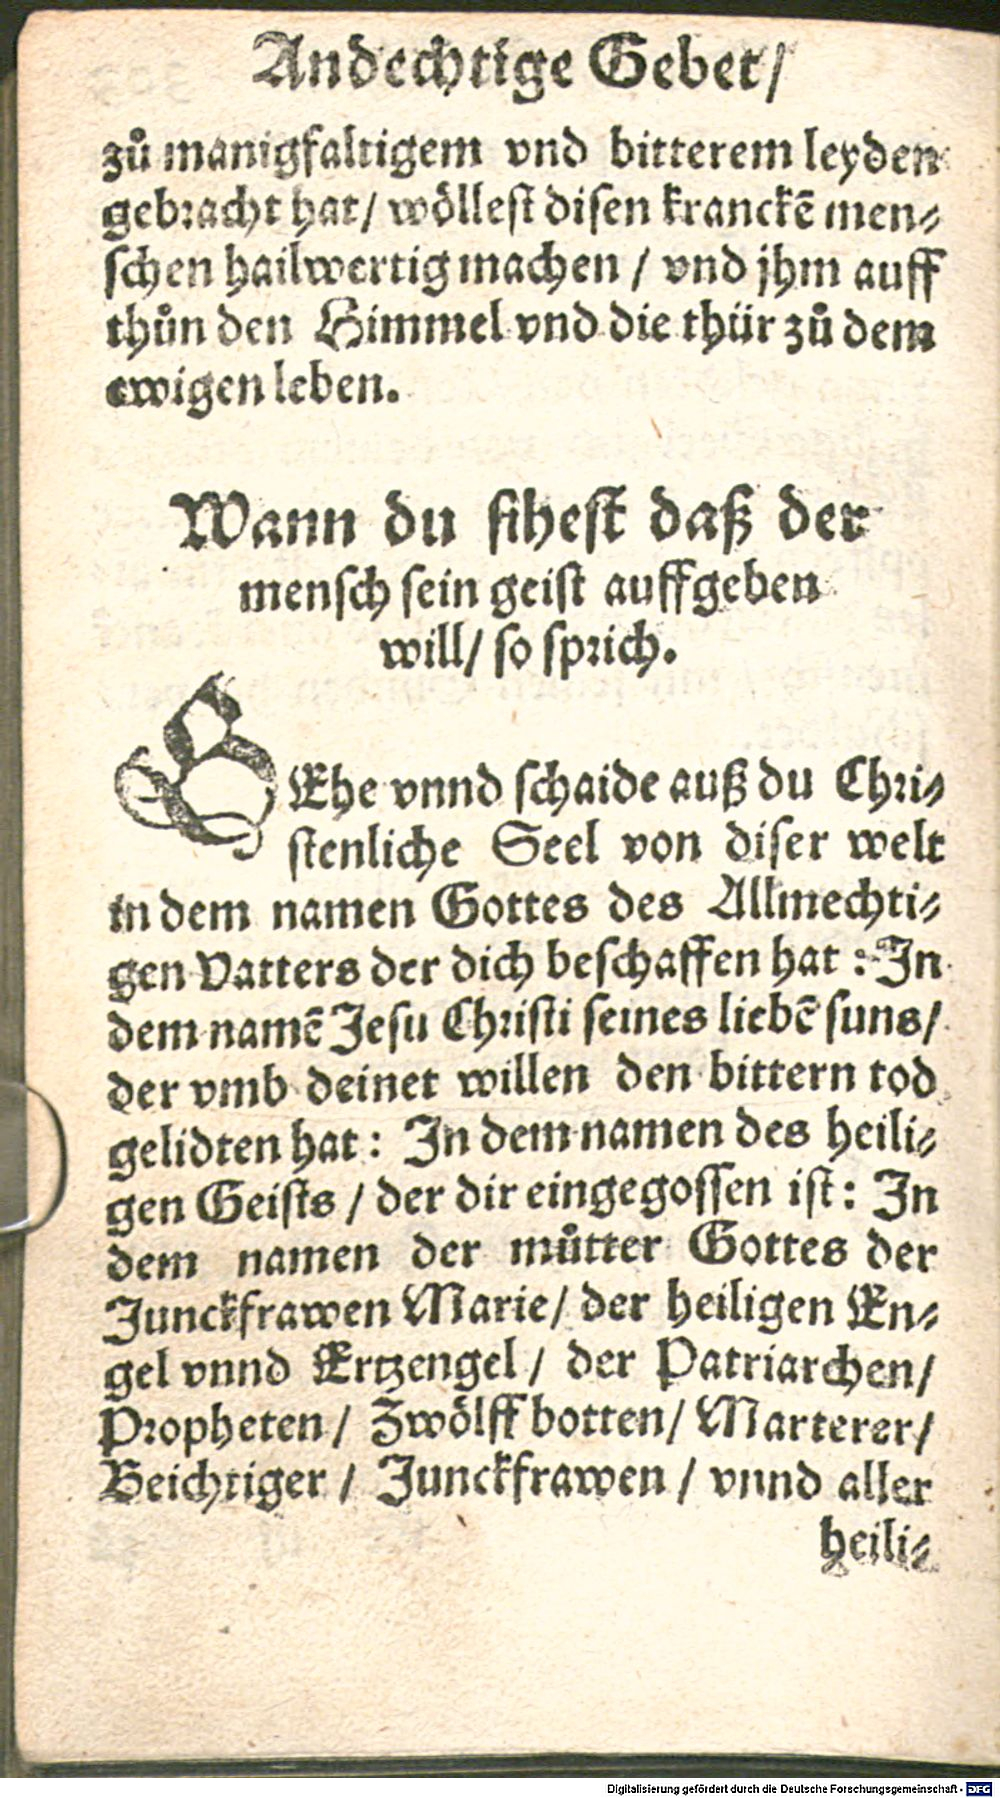 Andechtige Gebet/
zů manigfaltigem vnd bitterem leyden
gebracht hat/ wöllest disen kranckē men⸗
schen hailwertig machen / vnd jhm auff
thůn den Himmel vnd die thür zů dem
ewigen leben.
Wann du sihest daß der
mensch sein geist auffgeben
will/ so sprich.
GEhe vnnd schaide auß du Chri⸗
stenliche Seel von diser welt
in dem namen Gottes des Allmechti⸗
gen Vatters der dich beschaffen hat : In
dem namē Jesu Christi seines liebē suns/
der vmb deinet willen den bittern tod
gelidten hat : In dem namen des heili⸗
gen Geists / der dir eingegossen ist : In
dem namen der můtter Gottes der
Junckfrawen Marie/ der heiligen En⸗
gel vnnd Ertzengel / der Patriarchen/
Propheten/ Zwölffbotten/ Marterer/
Beichtiger / Junckfrawen / vnnd aller
heili⸗
Digitalisierung gefördert durch die Deutsche Forschungsgemeinschaft - DFG